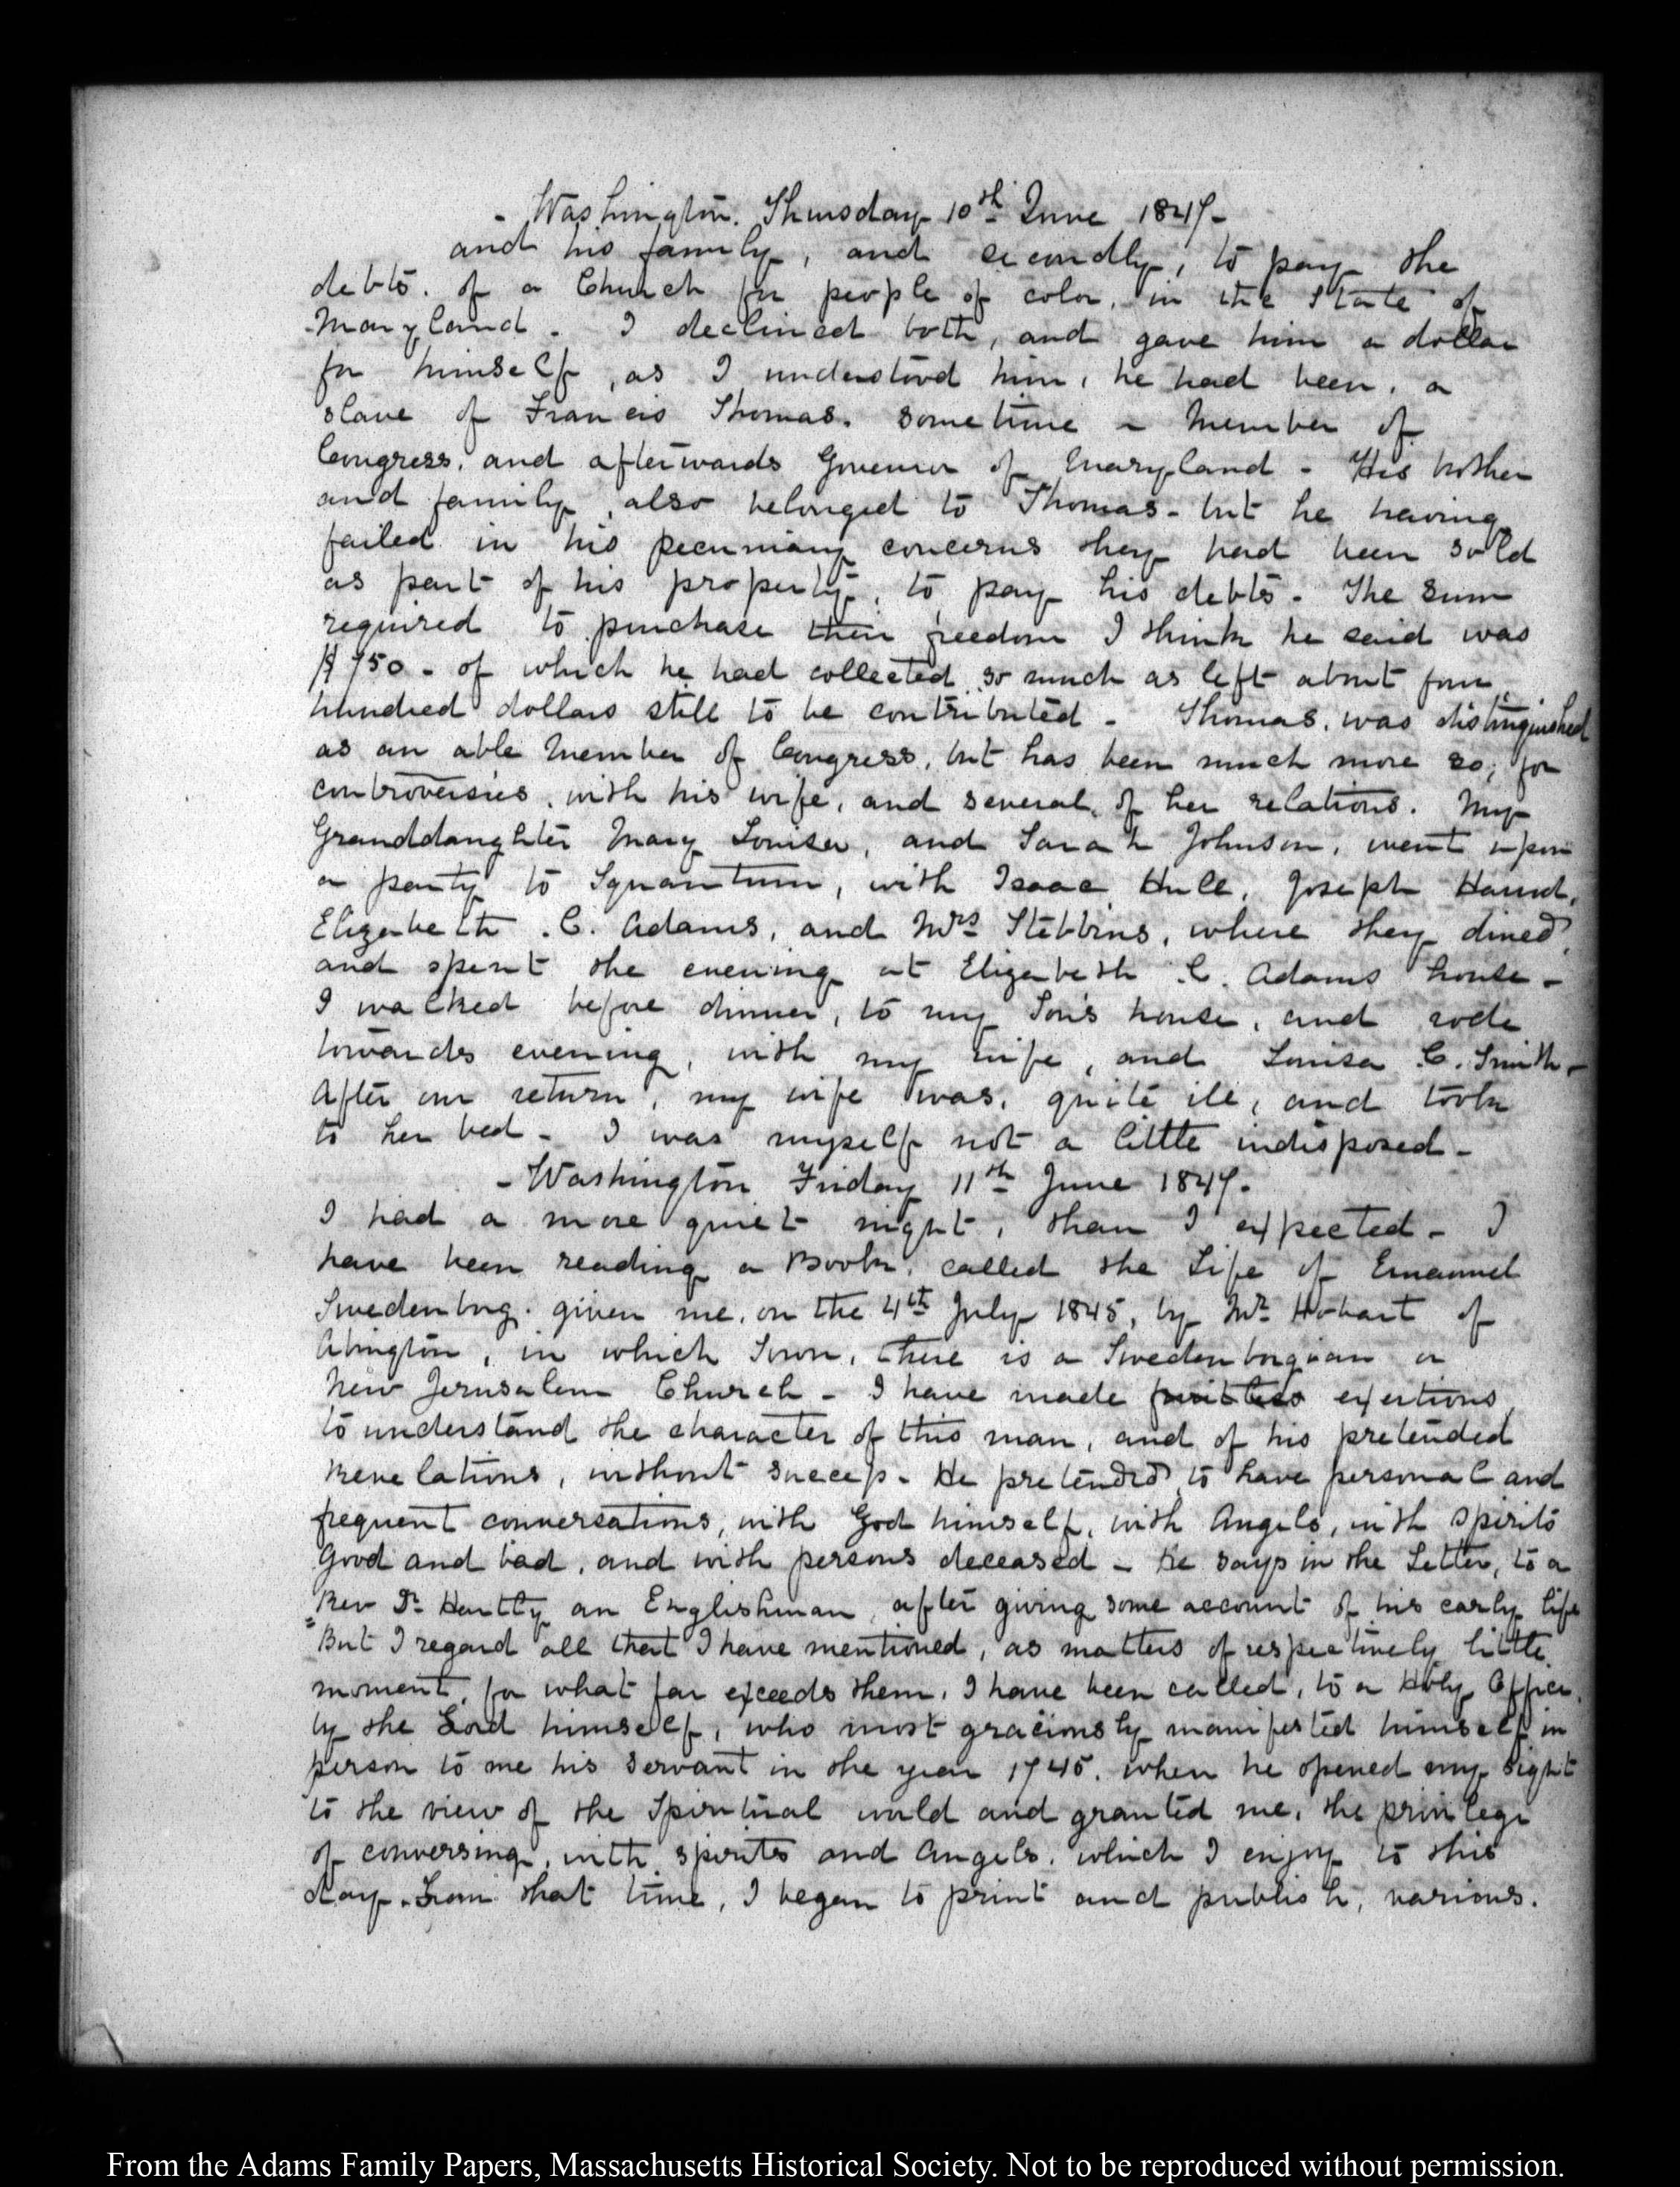 - Washington. Thursday 10th June 1847-
and his family, and secondly, to pay the
debts. of a Church for people of color, in the State of
Maryland - I declined both, and gave him a dollar
for himself, as I understood him, he had been, a
slave of Francis Thomas. sometime a Member of
Congress, and afterwards Governor of Maryland - His brother
and family, also belonged to Thomas - but he having
failed in his pecuniary concerns they had been sold
as part of his property, to pay his debts - The sum
required to purchase their freedom I think he said was
$750 - of which he had collected so much as left about four
hundred dollars still to be contributed - Thomas, was distinguished
as an able Member of Congress, but has been much more so, for
controversies, with his wife, and several of her relations. My
Granddaughter Mary Louisa, and Sarah Johnson, went upon
a party to Squantum, with Isaac Hull, Joseph Harrod,
Elizabeth .C. Adams, and Mrs Stebbins, where they dined,
and spent the evening at Elizabeth C. Adams house -
I walked before dinner, to my Son's house, and rode
towards evening, with my wife, and Louisa C. Smith -
After our return, my wife was, quite ill, and took
to her bed - I was myself not a little indisposed -
- Washington Friday 11th June 1847.
I had a more quiet night, than I expected - I
have been reading a Book, called the Life of Emanuel
Swedenborg. given me, on the 4th July 1845, by Mr Hobart of
Abington, in which Town, there is a Swedenborgian or
New Jerusalem Church - I have made fruitless exertions
to understand the character of this man, and of his pretended
Revelations, without success - He pretended to have personal and
frequent conversations, with God himself, with Angels, with spirits
good and bad, and with persons deceased - He says in the Letter, to a
Rev Dr Hartly an Englishman, after giving some account of his early life
"But I regard all that I have mentioned, as matters of respectively little
moment, for what far exceeds them, I have been called, to a Holy Office,
by the Lord himself, who most graciously manifested himself in
person to me his servant in the year 1745. when he opened my sight
to the view of the Spiritual world and granted me, the privilege
of conversing, with spirits and Angels, which I enjoy to this
day. From that time, I began to print and publish, various.
From the Adams Family Papers, Massachusetts Historical Society. Not to be reproduced without permission.